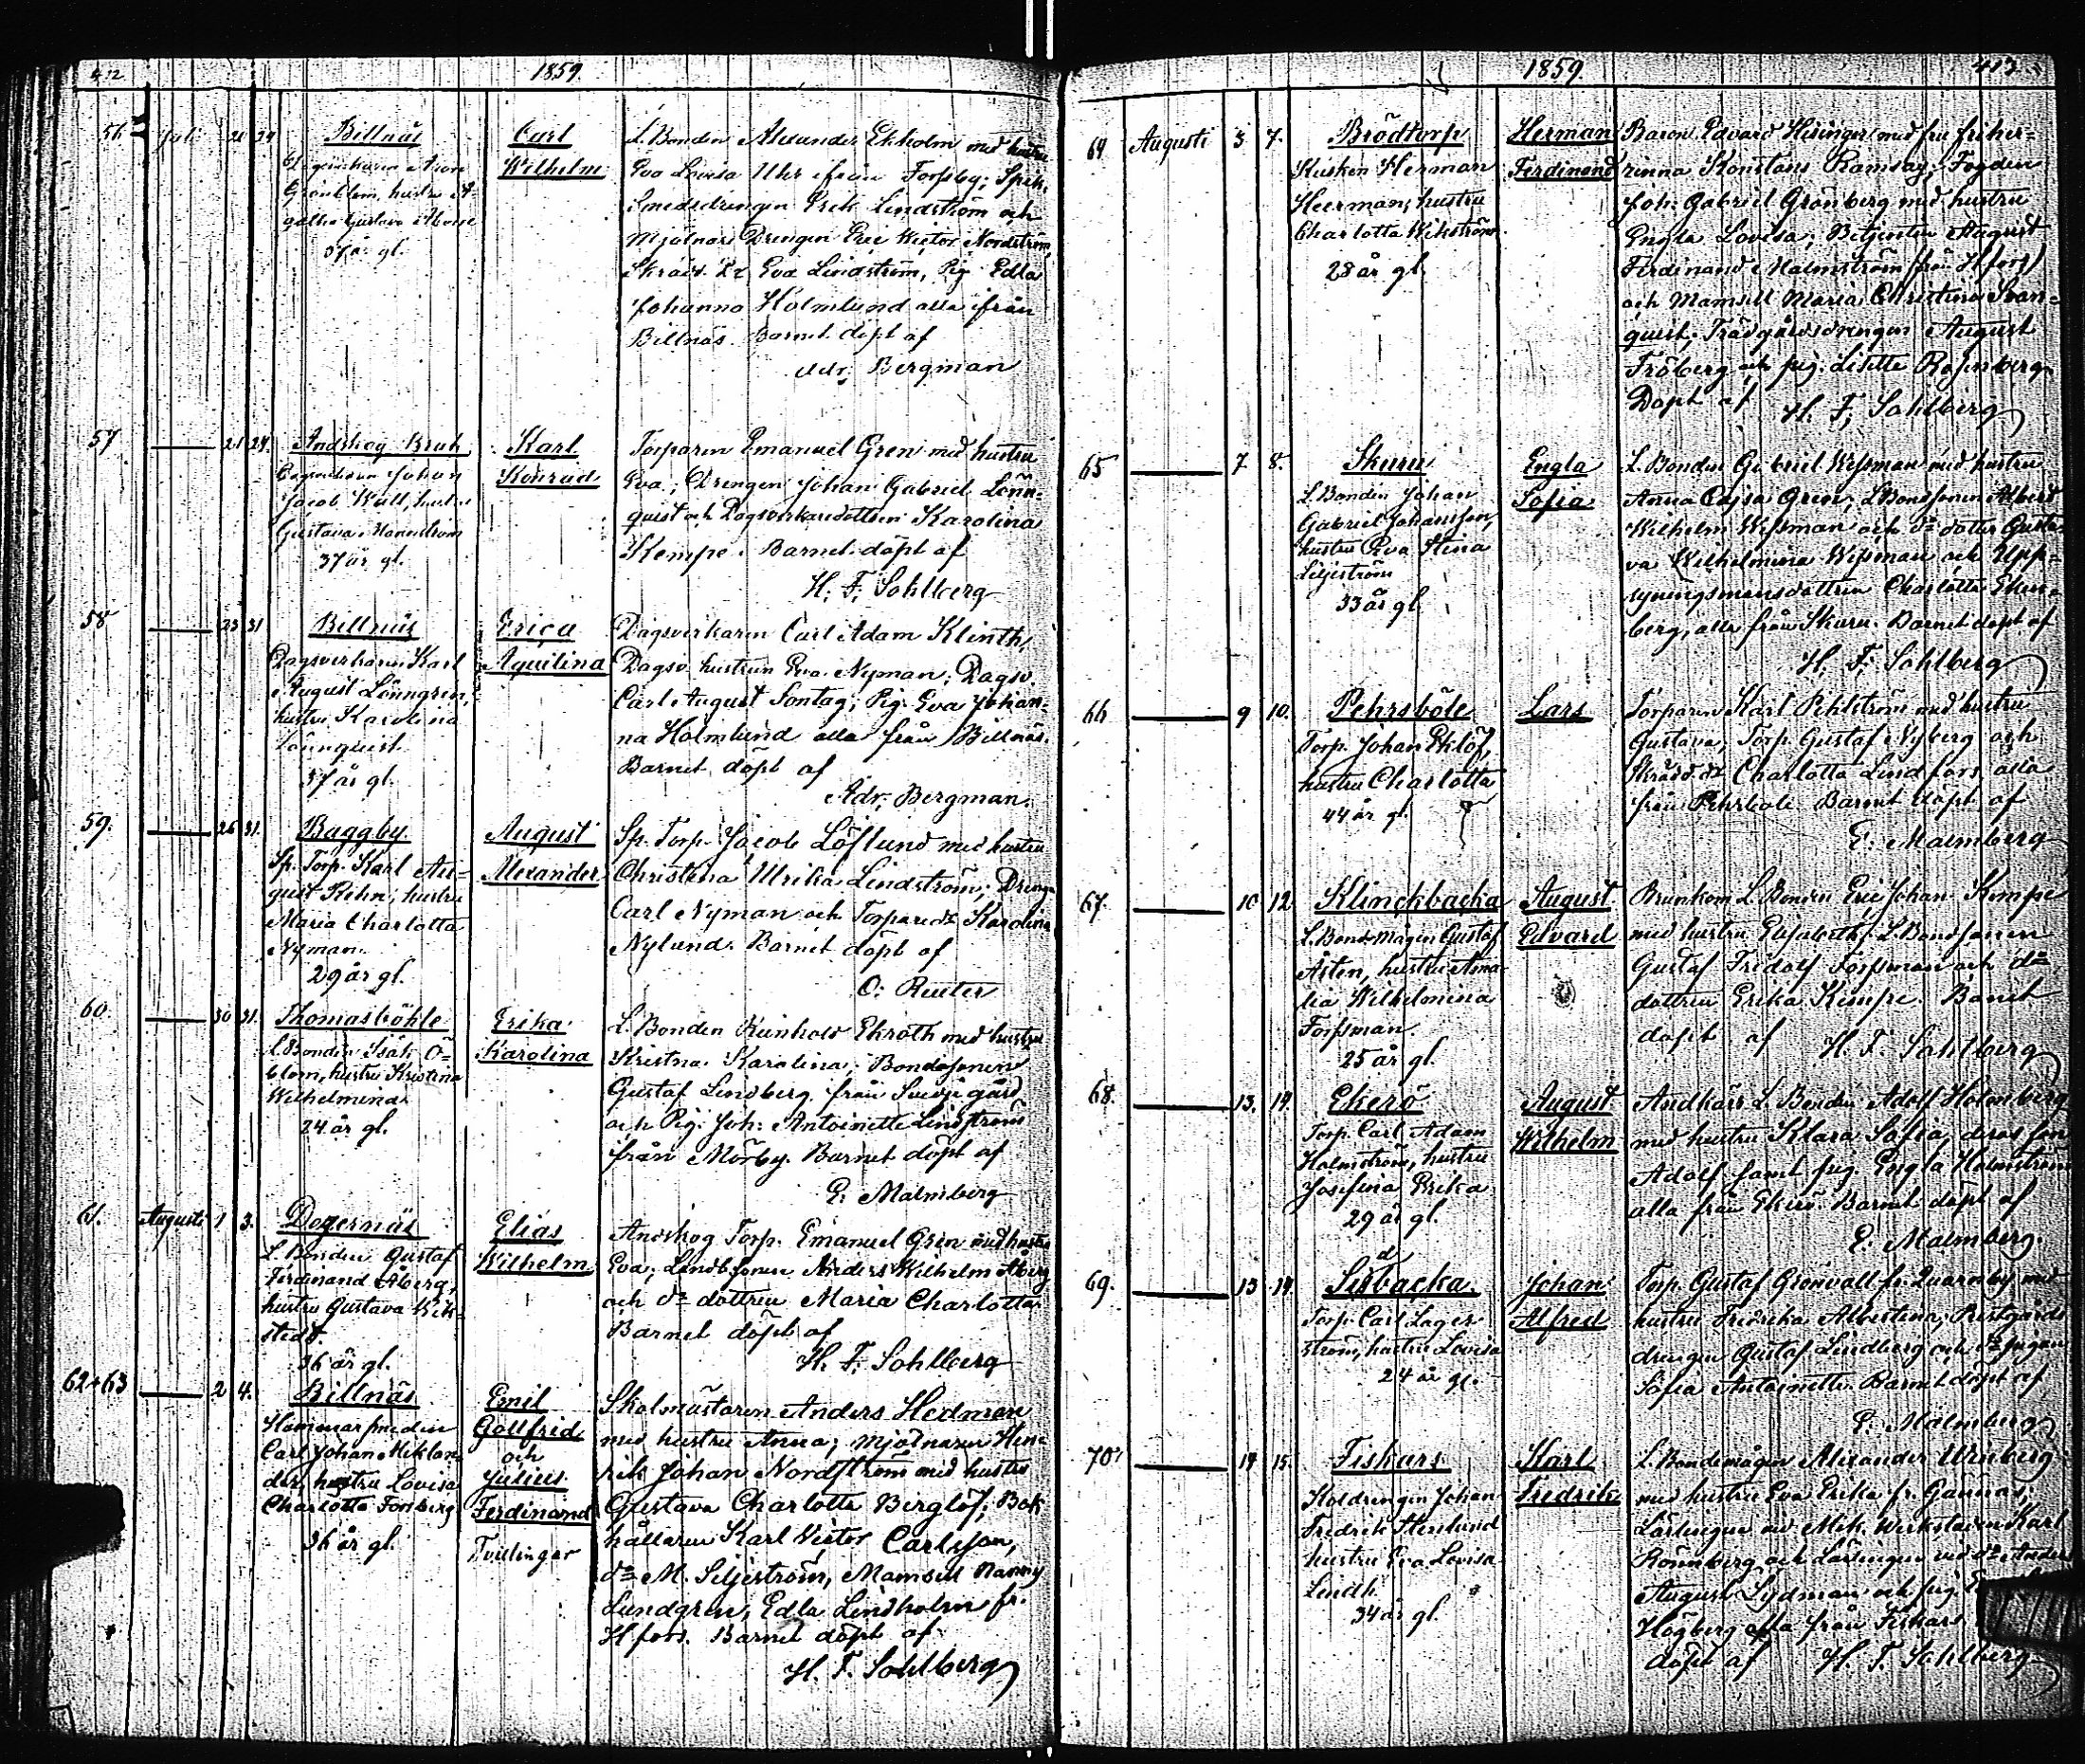 412
1859
56 Juli 21 24 Billnäs Carl L. Bonden Alexander Ekholm med hustru
Aron Wilhelm Eva Lovisa Uhr ifrån Torpby; Spik.
Grönblom, hustru A- Smedsdrengen Erik Lindström och
Gustava Mjölnare Drengen Eric Victor Nordström,
37 år gl. Eva Lindström, Pig. Edla
Johanna Holmlund alla ifrån
Billnäs. Barnet döpt af
Adr. Bergman
57 21 24. Andskog Bruk Karl Torparen Emanuel Gren med hustru
Johan Konrad Eva; Drengen Johan Gabriel Lönn-
Jacob Wall, hustru quist och Dagsverkaredottren Karolina
Gustava Kempe. Barnet döpt af
37 år gl. H. F. Sohlberg
58 25 31 Billnäs Erica Dagsverkaren Carl Adam Klinth,
Dagsverkaren Karl Aquilina Dagsv. hustrun Eva Nyman; Dagsv.
August Lönngren, Carl August Sontag; Pig. Eva Johan-
hustru Karolina na Holmlund alla från Billnäs.
Lönnquist Barnet döpt af
37 år gl. Adr. Bergman.
59. 26 31. Baggby. August Sp. Torp. Jacob Löflund med hustru
Sp. Torp. Karl Au- Alexander Christina Ulrika Lindström; Drengen
gust Rehn, hustru Carl Nyman och Torparedr Karolina
Maria Charlotta Nylund. Barnet döpt af
Nyman. O. Reuter
29 år gl.
60. 30 31. Thomasböhle Erika L. Bonden Reinhold Ekroth med hustru
L. Bonden Isak Ö- Karolina Kristna Karolina; Bondesonen
blom, hustru Kristina Gustaf Lindberg från Svedje gård
Wilhelmina och Pig. Joh. Antoinette Lindström
24 år gl. från Mörby. Barnet döpt af
E. Malmberg
61. Augusti 1 3. Degernäs Elias Andskog Torp. Emanuel Gren med hustru
L. Bonden Gustaf Wilhelm Eva; Landbsonen Anders Wilhelm Åberg
Ferdinand Åberg, och do dottren Maria Charlotta
hustru Gustava Wik- Barnet döpt af
stedt. H. F. Sohlberg
36 år gl.
62+63 2 4. Billnäs Emil Skolmästaren Anders Hedman
Hammarsmeden Gottfrid med hustru Anna; Mjölnaren Hen-
Carl Johan Miklan- och rik Johan Nordström med hustru
der, hustru Lovisa Julius Gustava Charlotta Berglöf; Bok-
Charlotta Forsberg Ferdinand hållaren Karl Victor Carlsson,
36 år gl. Tvillingar do M. Siljeström, Mamsell Nanny
Lundgren, Edla Lindholm fr.
Hfors. Barnet döpt af
H. F. Sohlberg
1859 413
64 Augusti 3 7. Brödtorp Herman Baron Edvard Hisinger med fru friher-
Kusken Herman Ferdinand rinna Konstans Ramsay; Fogden
Heerman, hustru Joh. Gabriel Grönberg med hustru
Charlotta Wikström Engla Lovisa; Betjenten August
28 år gl. Ferdinand Malmström från Hfors
och Mamsell Maria Christina Svan-
quist, Trädgårdsdrengen August
Fröberg och pig. Lisette Rosenberg.
Döpt af H. F. Sohlberg
65 7 8. Skuru Engla L. Bonden Gabriel Wessman med hustru
L. Bonden Johan Sofia Anna Cajsa Gren; L. Bondsonen Albert
Gabriel Johansson, Wilhelm Wessman och do dotter Gusta-
hustru Eva Stina va Wilhelmina Wessman och Upp-
Siljeström syningsmansdottren Charlotta Eken-
33 år gl. berg, alla från Skuru. Barnet döpt af
H. F. Sohlberg
66 9 10. Pehrsböle Lars Torparen Karl Pihlström med hustru
Torp. Johan Eklöf, Gustava, Torp. Gustaf Nyberg och
hustru Charlotta Charlotta Lindfors alla
44 år gl. från Pehrsböle. Barnet döpt af
E. Malmberg
67. 10 12 Klinckbacka August Brunkom L. Bonden Eric Johan Kempe
L. Bond-mågen Gustaf Edvard med hustru Elisabeth; L. Bondsonen
Åsten, hustru Ama- Gustaf Fridolf Forssman och do
lia Wilhelmina dottren Erika Kempe. Barnet
Forssman. döpt af H. F. Sohlberg
25 år gl.
68. 13. 14. Ekerö August Andkärr L. Bonden Adolf Holmberg
Torp. Carl Adam Wilhelm med hustru Klara Sofia, deras son
Holmström, hustru Adolf samt pig. Engla Holmström
Josefina Erika alla från Ekerö. Barnet döpt af
29 år gl. E. Malmberg.
69. 13 14 Sidbacka. Johan Torp. Gustaf Grönvall fr. Qvarnby med
Torp. Carl Lager- Alfred hustru Fredrika Albertina; Prestgårds
ström, hustru Lovisa drengen Gustaf Lindberg och do pigan
24 år gl. Sofia Antoinette. Barnet döpt af
E. Malmberg
70. 14 15. Fiskars Karl L. Bondemågen Alexander Wrnberg
Koldrengen Johan Fredrik med hustru Eva Erika fr. Gännäs;
Fredrik Stenlund Lärlingen vid Mek. Werkstaden Karl
hustru Eva Lovisa Rönnberg och Lärlingen vid do Anders
Lindh. August Lydman och pig.
34 år gl. Högberg alla från Fiskars
döpt af H. F. Sohlberg